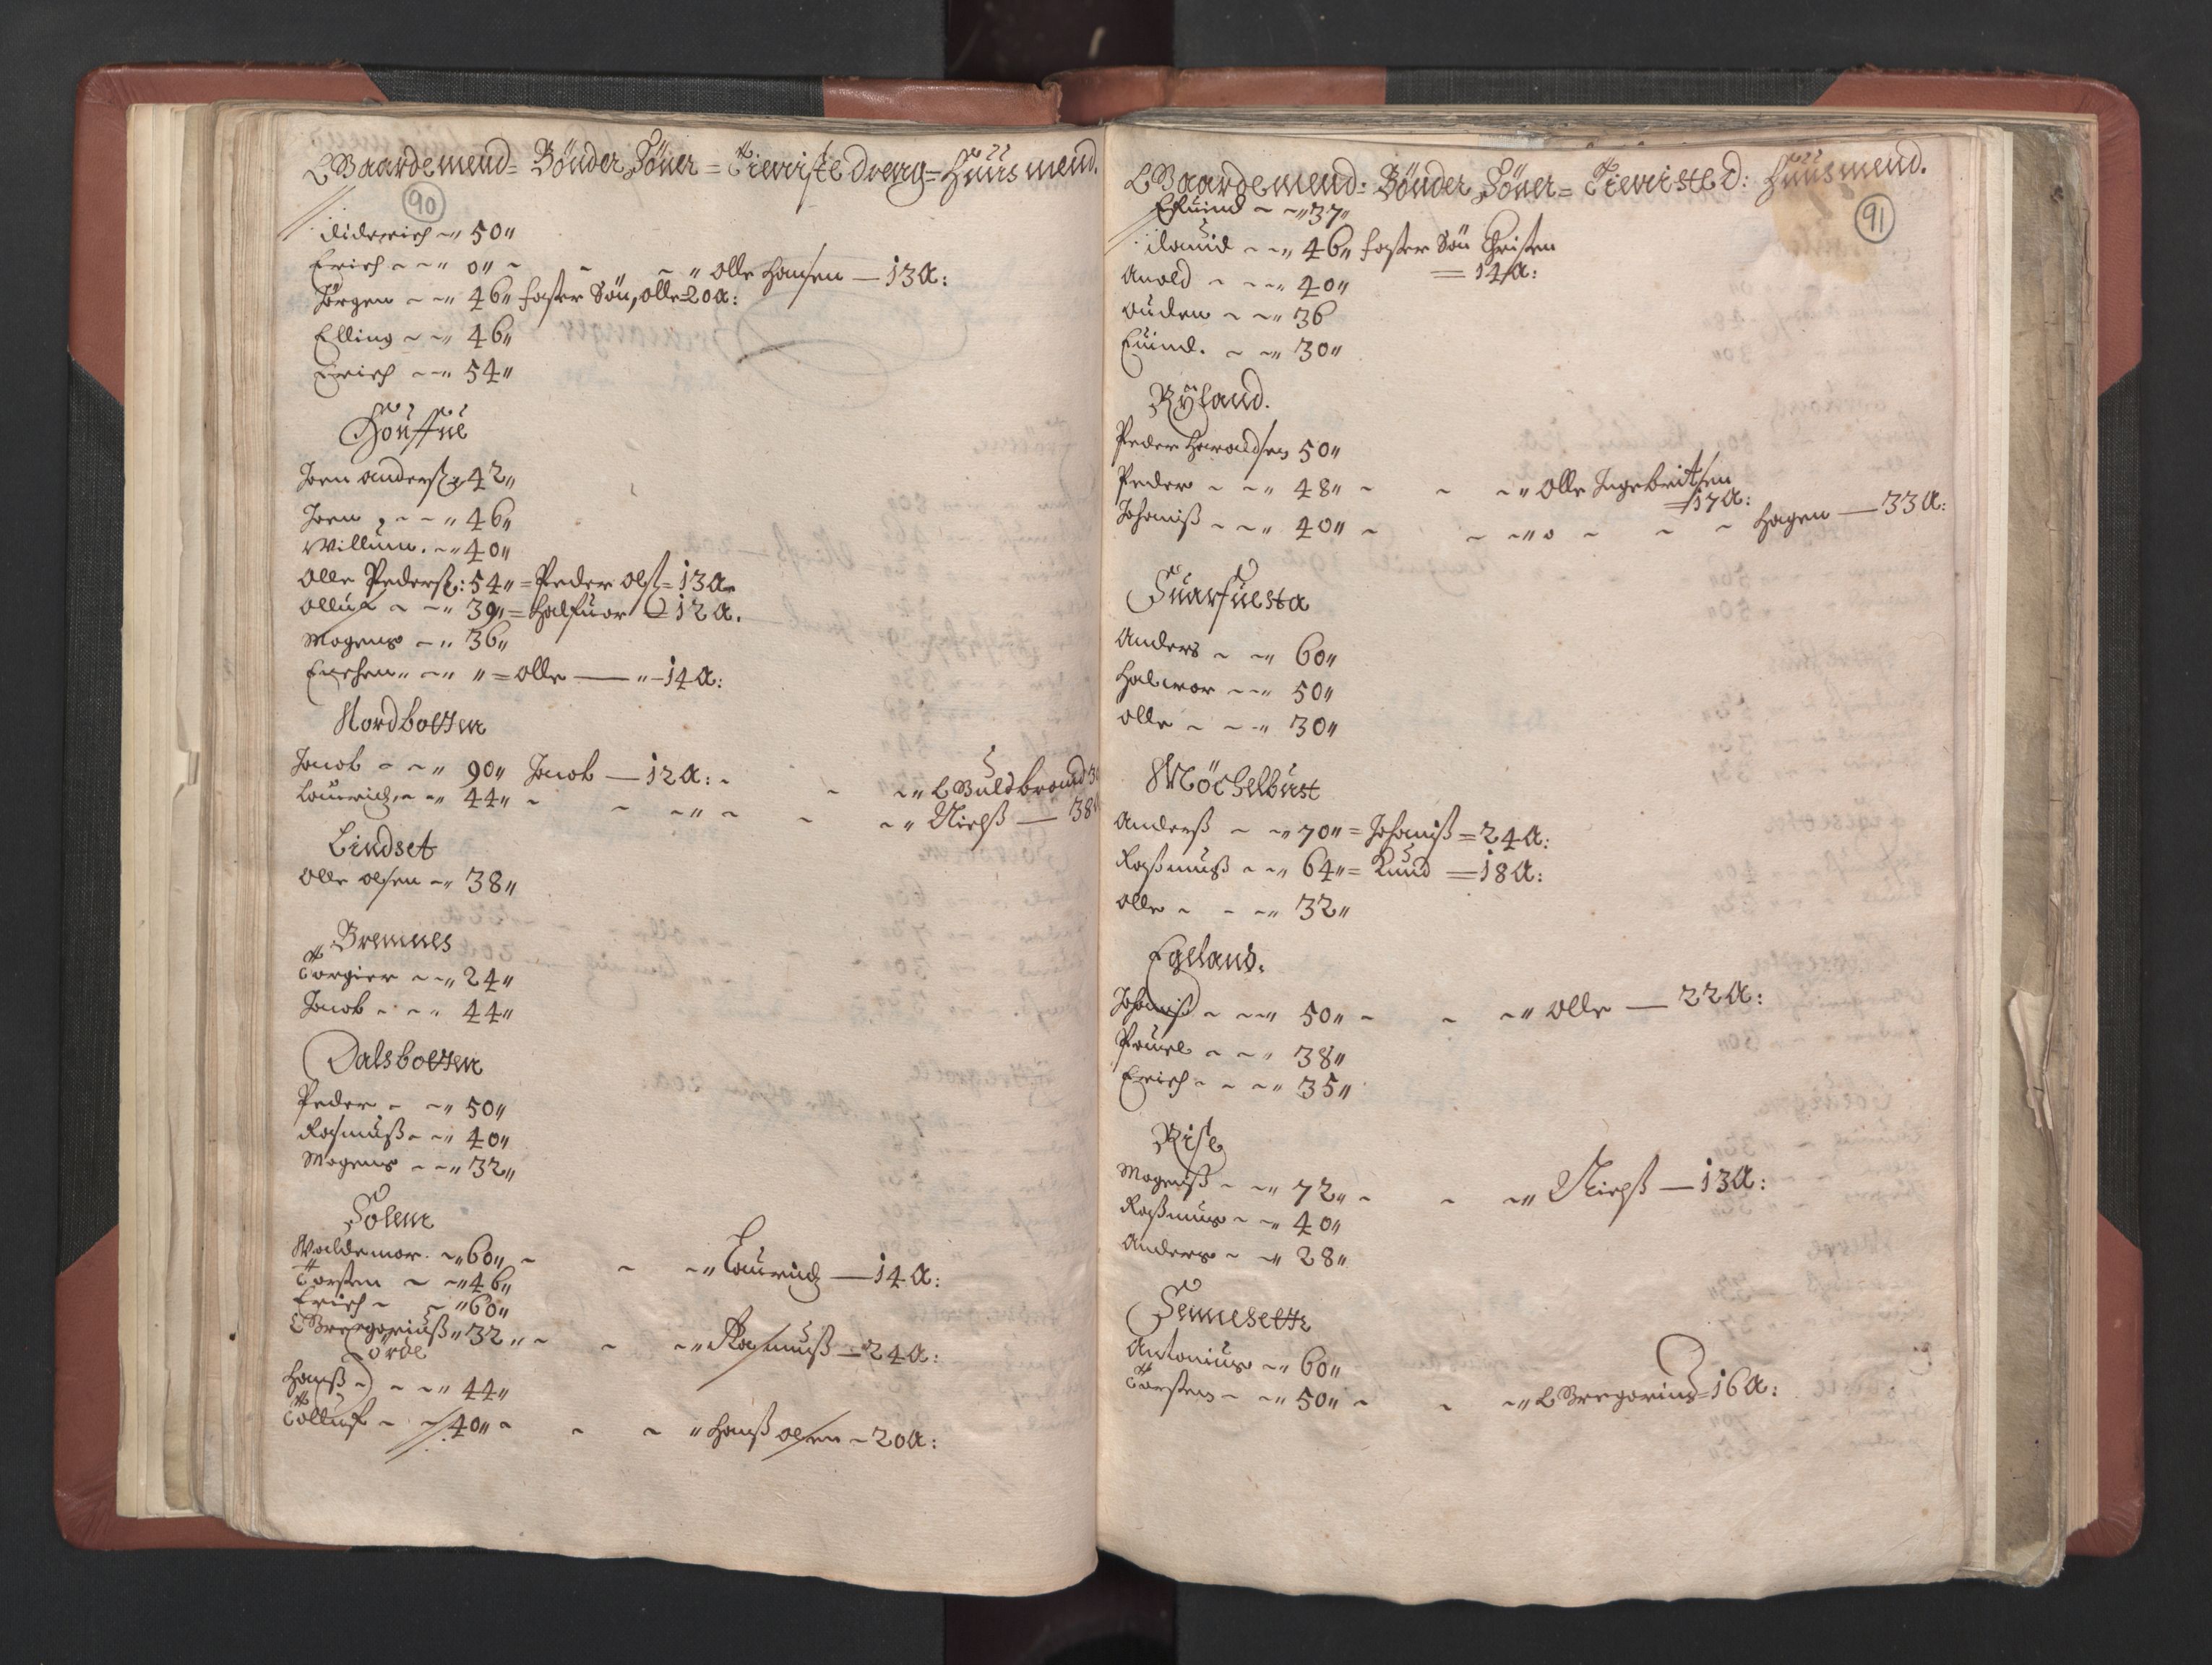 Gaardemend= Bönder Söner = Tieniste dreng= Huusmend.
90
Diderich ~ " 50"
Erich ~ ~ " 0" ~ ~ ~ " Olle Hansen — 13 A:
Jörgen ~ ~ " 46" Foster Sön, Olle=20 A:
Elling ~ ~ " 46"
Erich ~ ~ " 54"
Joen Anderss 42"
Joen ~ ~ " 46"
Willum. ~ " 40"
Olle Pederss: 54" = Peder Olss = 13 A.
Olluf ~ ~ " 39" = Halfuor = 12 A.
Mogens ~ " 36"
" = Olle — " — 14 A:
Nordbotten
Jacob ~ ~ " 90" Jacob — 12 A: ~ ~ ~ " Guldbrand 3
Lauridz ~ ~ " 44" ~ ~ ~ " ~ ~ ~ " Nielß — 38
Lindset
Olle Olsen ~ " 38"
Bremnes
Torgier ~ ~ " 24"
Jacob ~ ~ " 44"
Dalsbotten
Peder ~ ~ " 50"
Rasmuß ~ ~ " 40"
Mogens ~ ~ " 32"
Solem
Waldemor. ~ " 60" ~ ~ ~ " Lauridz — 14 A:
Torsten ~ ~ " 46"
Erich ~ ~ " 60"
Gregoriuß " 32" ~ ~ ~ " Rasmuß — 24 A:
Hanß ~ ~ ~ " 44"
Tolluf ~ ~ 40" ~ ~ ~ " Hanß Olsen ~ 20 A:
Gaardemend= Bönder Söner= Tieniste D: Huusmend.
91
Efuind ~ ~ " 37"
Dauid ~ ~ " 46" Foster Sön Christen
= 14 A:
Anold ~ ~ ~ " 40"
Auden ~ ~ " 36
Euind. ~ ~ " 30"
Ryland.
Peder Haraldsen 50"
Peder ~ ~ " 48" ~ ~ ~ " Olle Ingebritsen
= 17 A:
Johaniß ~ ~ " 40" ~ ~ ~ " 0 ~ ~ ~ Hagen — 33 A:
Suarfuesta
Anders ~ ~ " 60"
Halwor ~ ~ " 50"
Olle ~ ~ ~ " 30"
Möchelbust
Anderß ~ ~ " 70" = Johaniß = 24 A:
Raßmuß ~ ~ " 64" = Knud = 18 A:
Olle ~ ~ ~ " 32"
Egeland.
Johaniß ~ ~ ~ " 50" ~ ~ ~ " Olle — 22 A:
Pouel ~ ~ " 38"
Erich ~ ~ ~ " 35"
Rise
Mogenß ~ ~ " 72" ~ ~ ~ " Nielß — 13 A:
Raßmus ~ ~ " 40"
Anders ~ ~ " 28"
Semesette
Antonius ~ " 60"
Torsten ~ ~ " 50" ~ ~ ~ " Gregorius = 16 A: